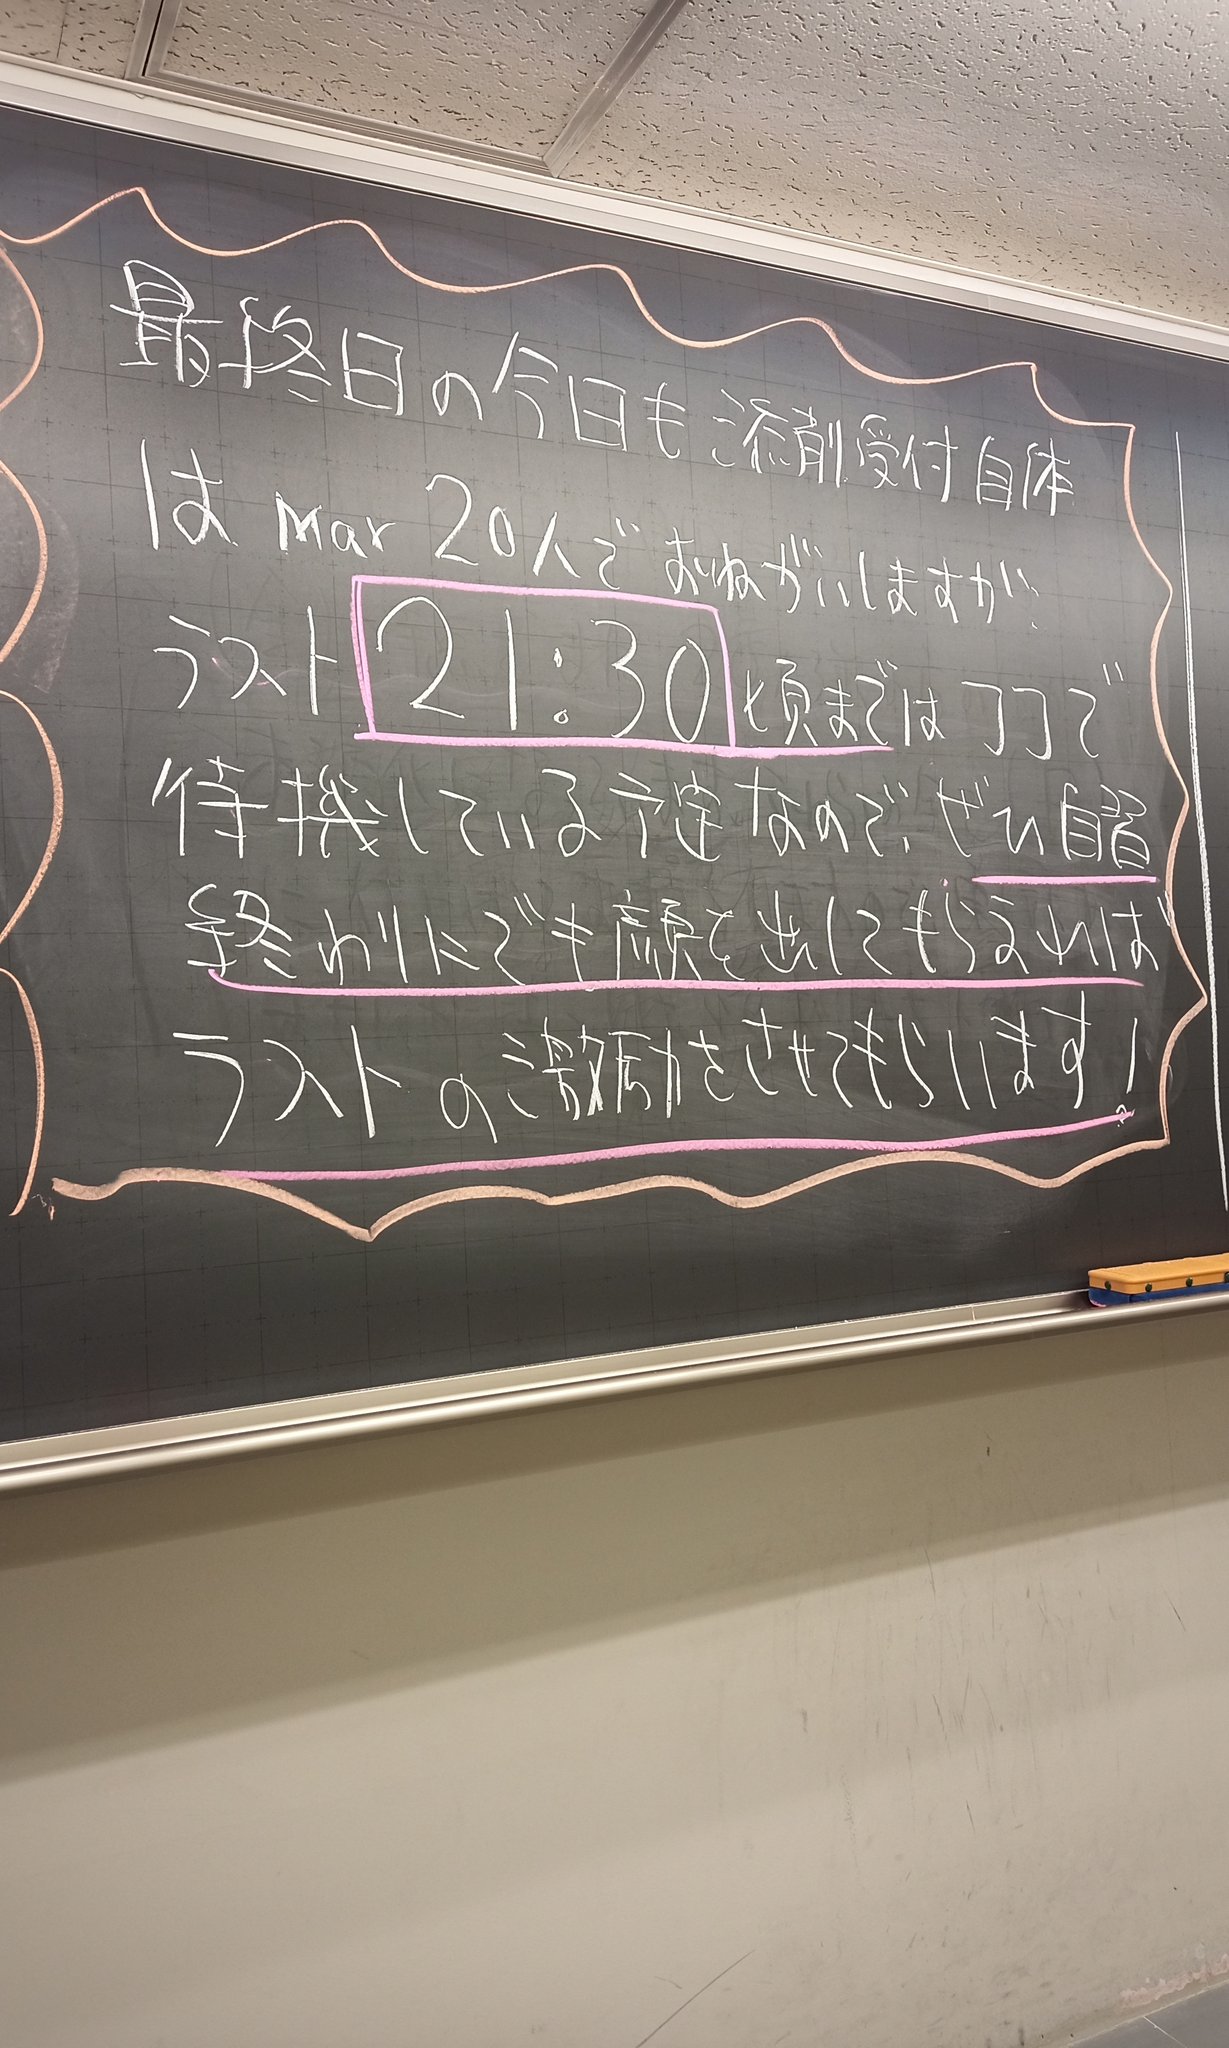 最終日の今日も添削受付自体
は Mar 20人でおねがいしますが、
ラスト 21:30 頃まではココで
待機している予定なので、ぜひ自習
終わりにでも顔を出してもらえれば
ラストの激励をさせてもらいます!